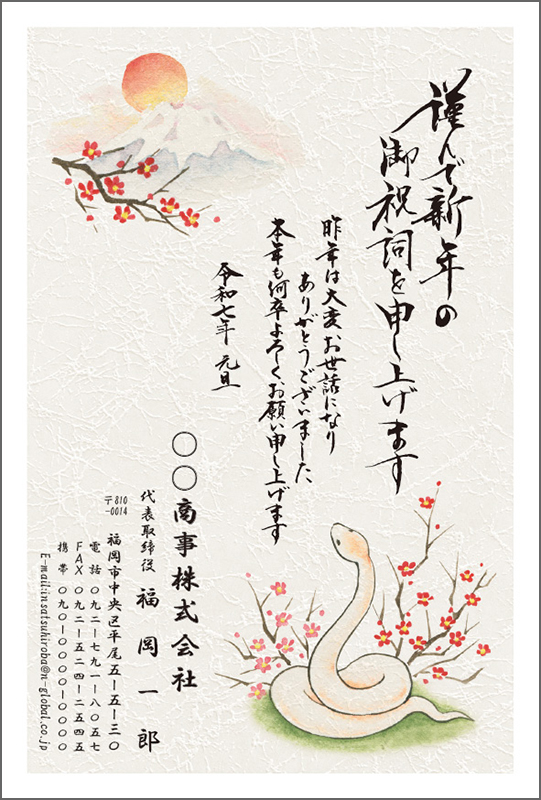 謹んで新年の
御祝詞を申し上げます
昨年は大変お世話になり
ありがとうございました
本年も何卒よろしくお願い申し上げます
令和七年 元旦
〇〇商事株式会社
代表取締役 福岡一郎
〒810-0014
福岡市中央区平尾五-五-三〇
電話 〇九二-七九一-八〇五七
FAX 〇九二-五二四-二五四五
携帯 〇九〇-〇〇〇〇-〇〇〇〇
E-mail:insatsuhiroba@n-global.co.jp